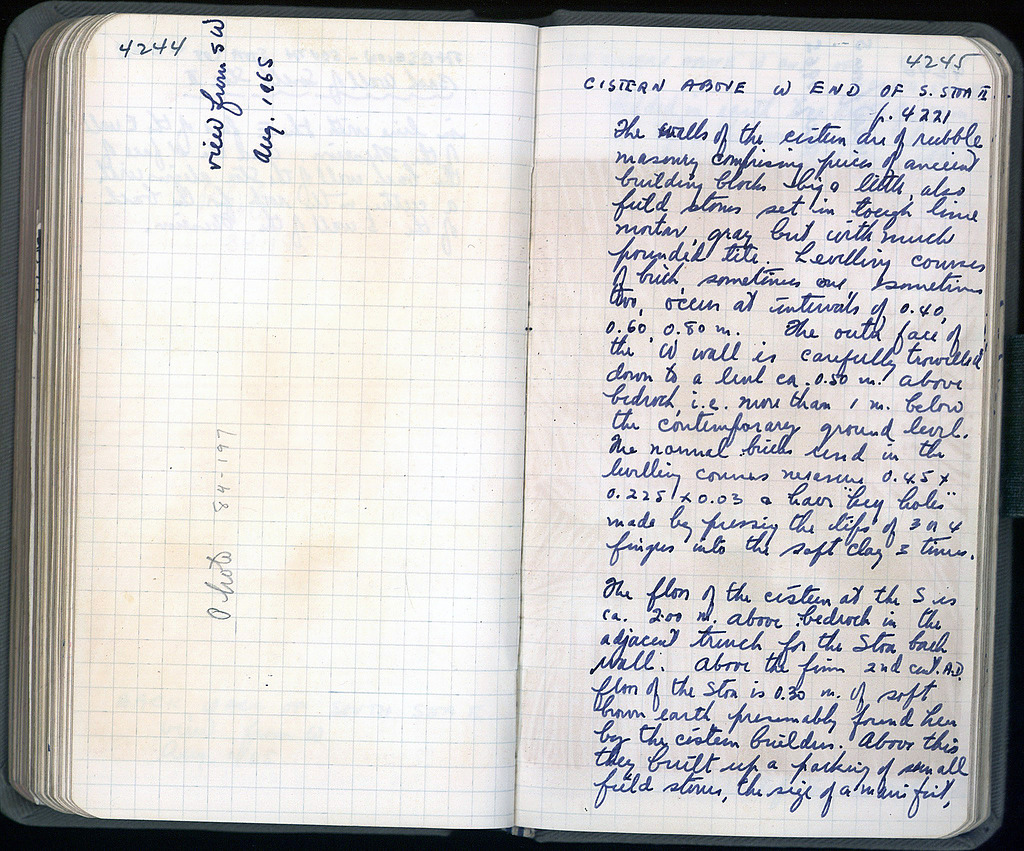 4244
view from SW
Aug. 1965
Photo 84-197
4245
CISTERN ABOVE W END OF S. STOA II
p. 4221
The walls of the cistern are of rubble
masonry comprising pieces of ancient
building blocks big & little, also
field stones set in tough lime
mortar, gray but with much
pounded tile. Levelling courses
of brick, sometimes one, sometimes
two, occur at intervals of 0.40,
0.60, 0.80 m. The outer face of
the W wall is carefully trowelled
down to a level ca. 0.50 m. above
bedrock, i.e. more than 1 m. below
the contemporary ground level.
The normal bricks used in the
levelling courses measure 0.45 x
0.225 x 0.03 & have "key holes"
made by pressing the tips of 3 or 4
fingers into the soft clay 3 times.
The floor of the cistern at the S is
ca. 2.00 m. above bedrock in the
adjacent trench for the Stoa back
wall. Above the firm 2nd cent. A.D.
floor of the Stoa is 0.30 m. of soft
brown earth presumably found here
by the cistern builders. Above this
they built up a packing of small
field stones, the size of a man's fist,